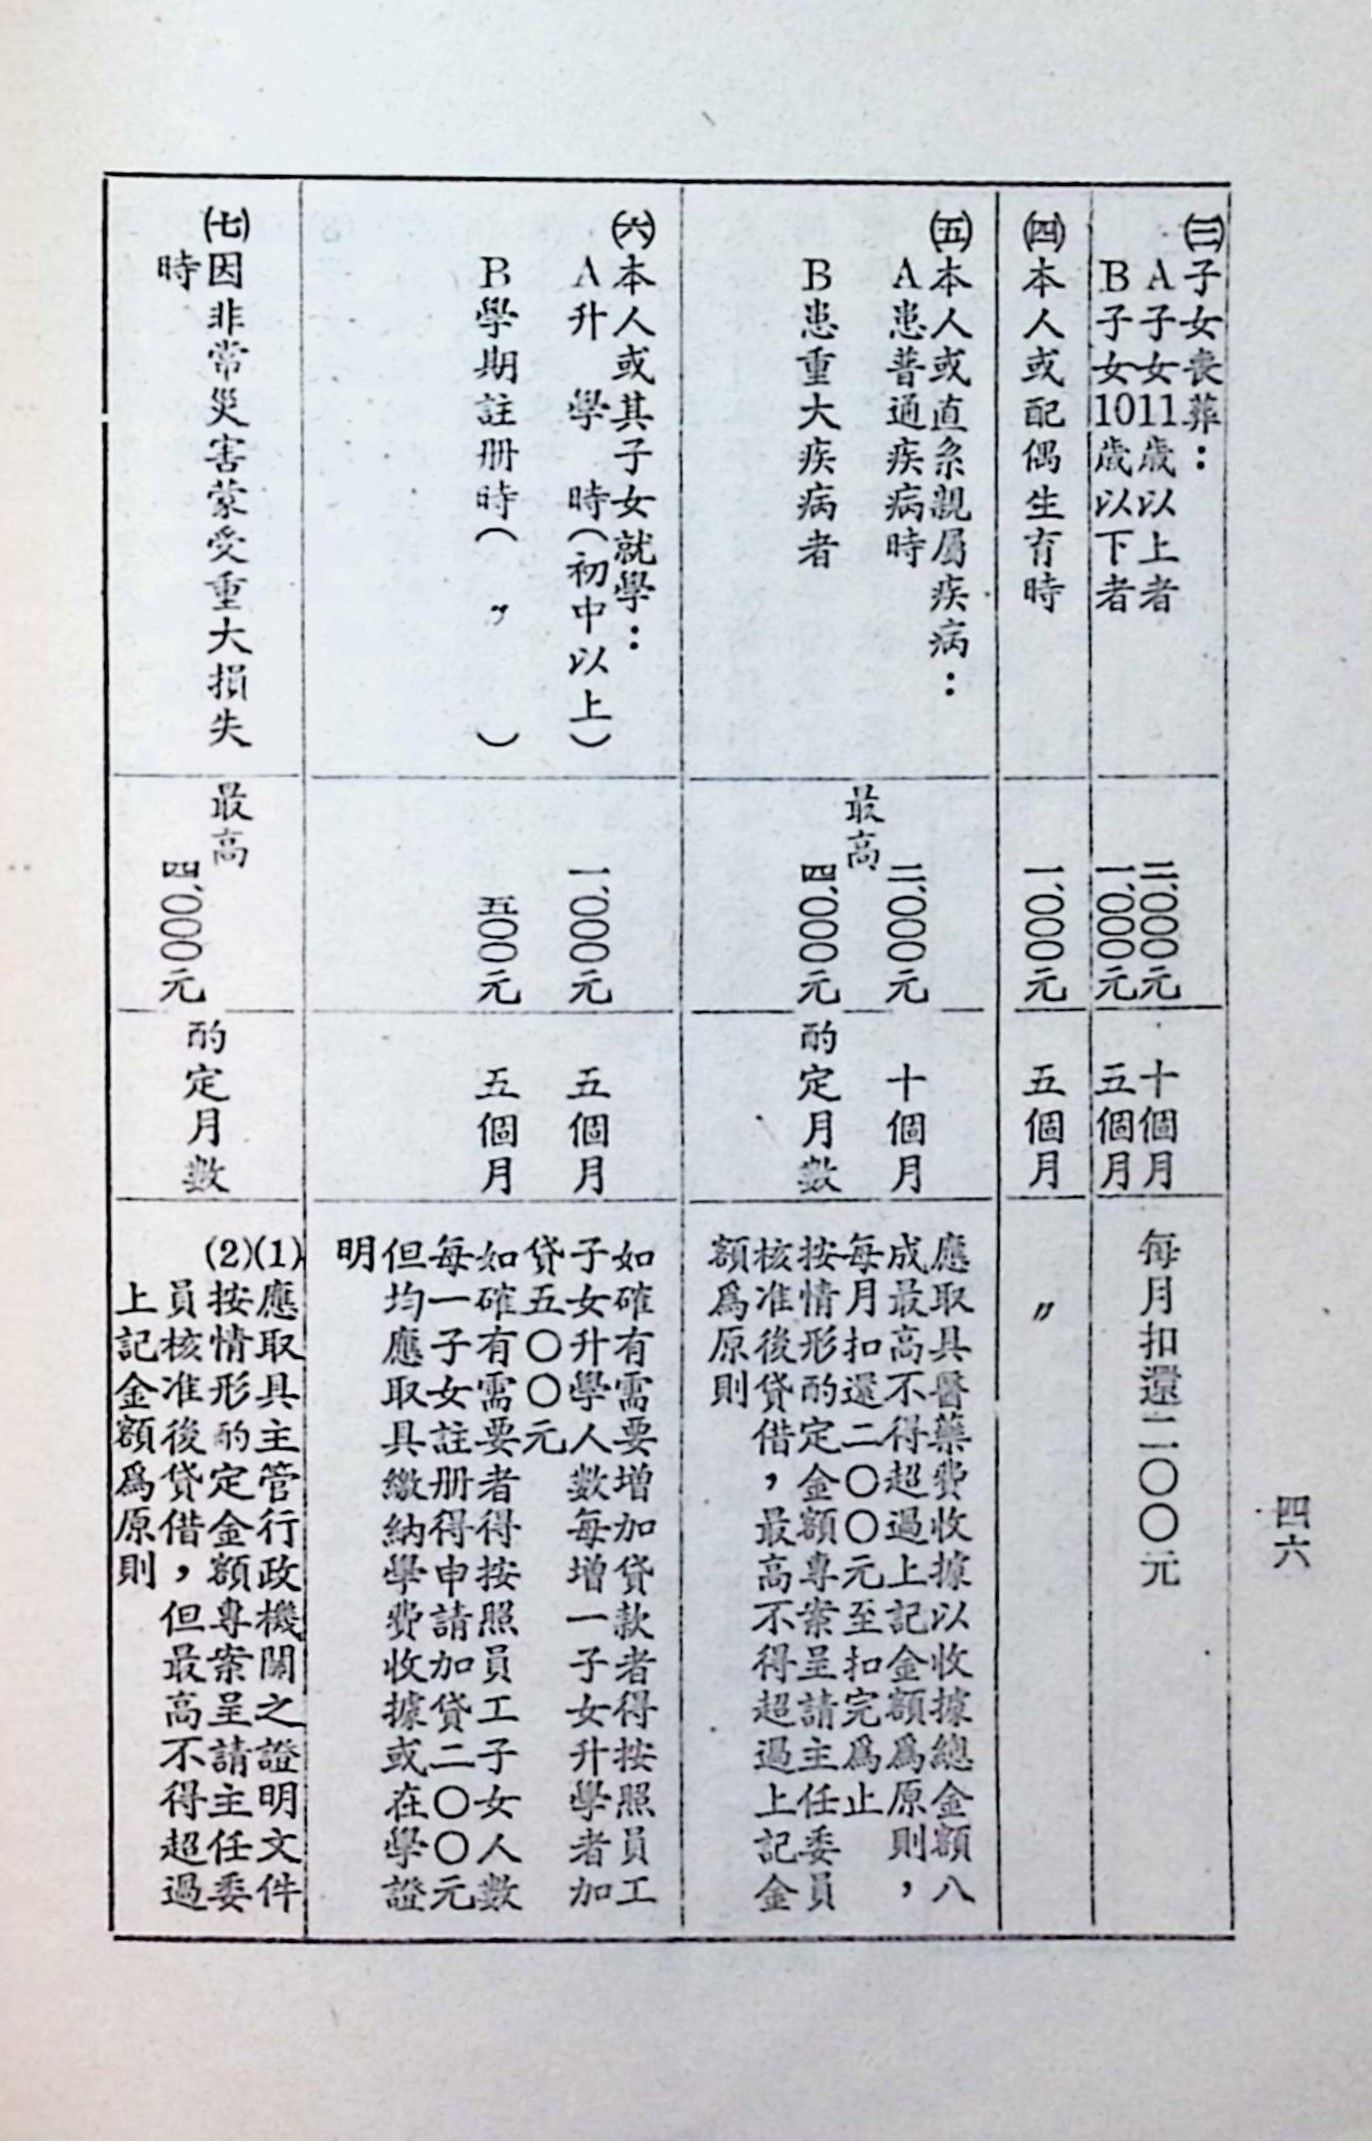 四六
㈢子女喪葬：
A子女11歲以上者
B子女10歲以下者
二、〇〇〇元
一、〇〇〇元
十個月
五個月
每月扣還二〇〇元
㈣本人或配偶生育時
一、〇〇〇元
五個月
〃
㈤本人或直系親屬疾病：
A患普通疾病時
B患重大疾病者
二、〇〇〇元
最高
四、〇〇〇元
十個月
酌定月數
應取具醫藥費收據以收據總金額八
成最高不得超過上記金額爲原則，
每月扣還二〇〇元至扣完爲止
按情形酌定金額專案呈請主任委員
核准後貸借，最高不得超過上記金
額爲原則
㈥本人或其子女就學：
A升　學　時（初中以上）
B學期註册時（　〃　）
一、〇〇〇元
五〇〇元
五個月
五個月
如確有需要增加貸款者得按照員工
子女升學人數每增一子女升學者加
貸五〇〇元
如確有需要者得按照員工子女人數
每一子女註册得申請加貸二〇〇元
但均應取具繳納學費收據或在學證
明
㈦因非常災害蒙受重大損失
時
最高
四、〇〇〇元
酌定月數
(1)應取具主管行政機關之證明文件
(2)按情形酌定金額專案呈請主任委
員核准後貸借，但最高不得超過
上記金額爲原則